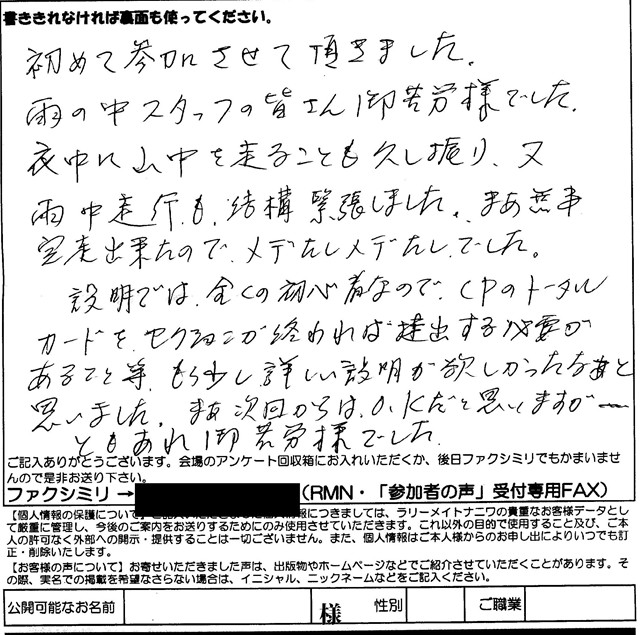 書ききれなければ裏面も使ってください。
初めて参加させて頂きました。
雨の中スタッフの皆さん御苦労様でした。
夜中に山中を走ることも久し振り、又
雨中走行も、結構緊張しました。まあ無事
完走出来たので、メデたしメデたし、でした。
説明では、全くの初心者なので、CPのトータル
カードを、セクションが終われば提出する必要が
あること等、もう少し詳しい説明が欲しかったなあと
思いました。まあ次回からは、O.Kだと思いますが一
ともあれ御苦労様でした。
ご記入ありがとうございます。会場のアンケート回収箱にお入れいただくか、後日ファクシミリでもかまいませ
んので是非お送り下さい。
ファクシミリ→ (RMN・「参加者の声」受付専用FAX)
【個人情報の保護について】 につきましては、ラリーメイトナニワの貴重なお客様データとし
て厳重に管理し、今後のご案内をお送りするためにのみ使用させていただきます。これ以外の目的で使用すること及び、ご本
人の許可なく外部への開示・提供することは一切ございません。また、個人情報はご本人様からのお申し出によりいつでも訂
正・削除いたします。
【お客様の声について】お寄せいただきました声は、出版物やホームページなどでご紹介させていただくことがあります。そ
の際、実名での掲載を希望なさらない場合は、イニシャル、ニックネームなどをご記入ください。
公開可能なお名前 様 性別 ご職業